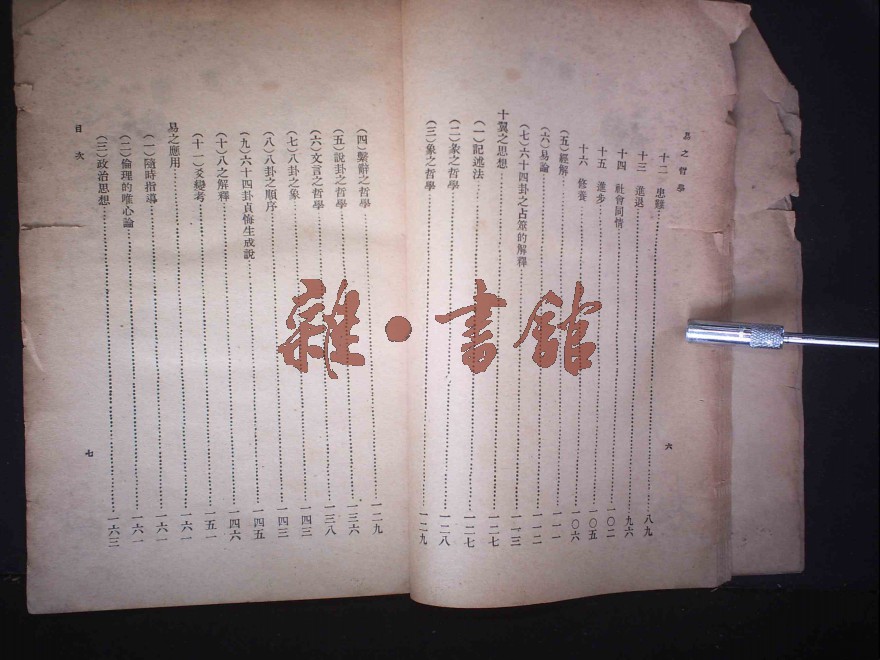 易之哲學
十二 患難……八九
十三 進退……九六
十四 社會同情……一〇二
十五 進步……一〇五
十六 修養……一〇六
(五)經解……一一一
(六)易論……一一二
(七)六十四卦之占筮的解釋……一一三
十翼之思想……一二七
(一)記述法……一二七
(二)彖之哲學……一二八
(三)象之哲學……一二九
六
(四)繫辭之哲學……一二九
(五)說卦之哲學……一三六
(六)文言之哲學……一三八
(七)八卦之象……一四三
(八)八卦之順序……一四三
(九)六十四卦貞悔生成說……一四五
(十)八之解釋……一四六
(十一)爻變考……一五一
易之應用……一六一
(一)隨時指導……一六一
(二)倫理的唯心論……一六一
(三)政治思想……一六三
目次
七
雜·書館